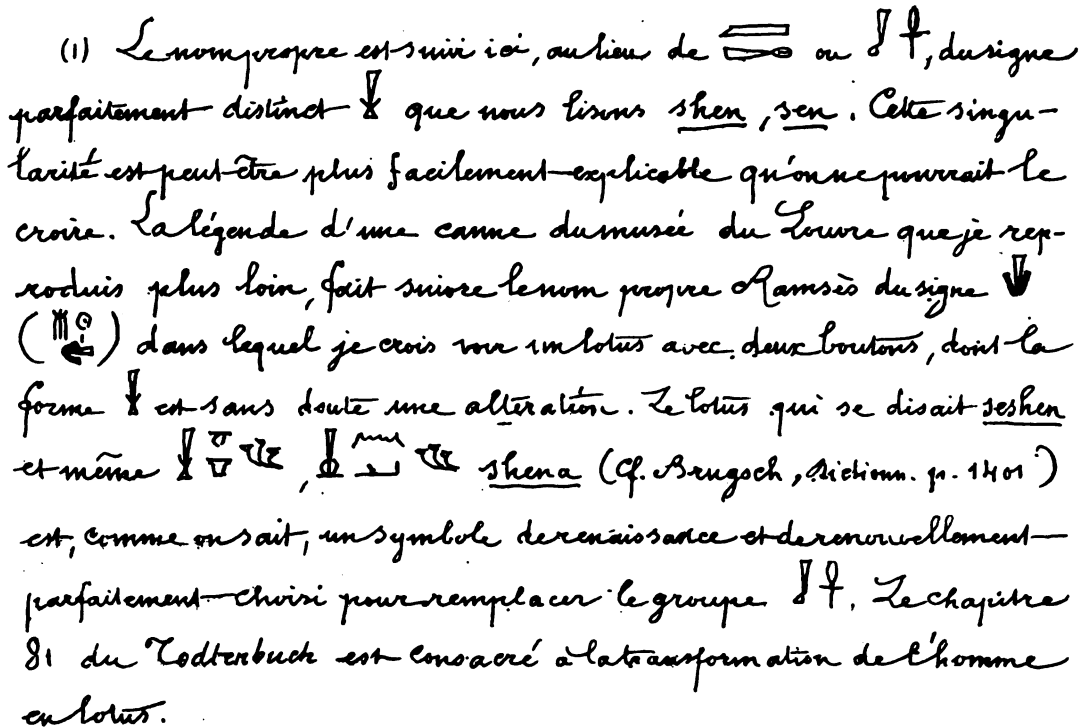 (1) Le nom propre est suivi ici, au lieu de ou , du signe
parfaitement distinct que nous lisons shen, sen. Cette singu-
larité est peut-être plus facilement explicable qu'on ne pourrait le
croire. La légende d'une canne du musée du Louvre que je rep-
roduis plus loin, fait suivre le nom propre Ramsès du signe
( ) dans lequel je crois voir un lotus avec deux boutons, dont la
forme est sans doute une altération. Le lotus qui se disait seshen
et même , shena (Cf. Brugsch, Dictionn. p. 1401)
est, comme on sait, un symbole de renaissance et de renouvellement
parfaitement choisi pour remplacer le groupe . Le chapitre
81 du Todtenbuch est consacré à la transformation de l'homme
en lotus.